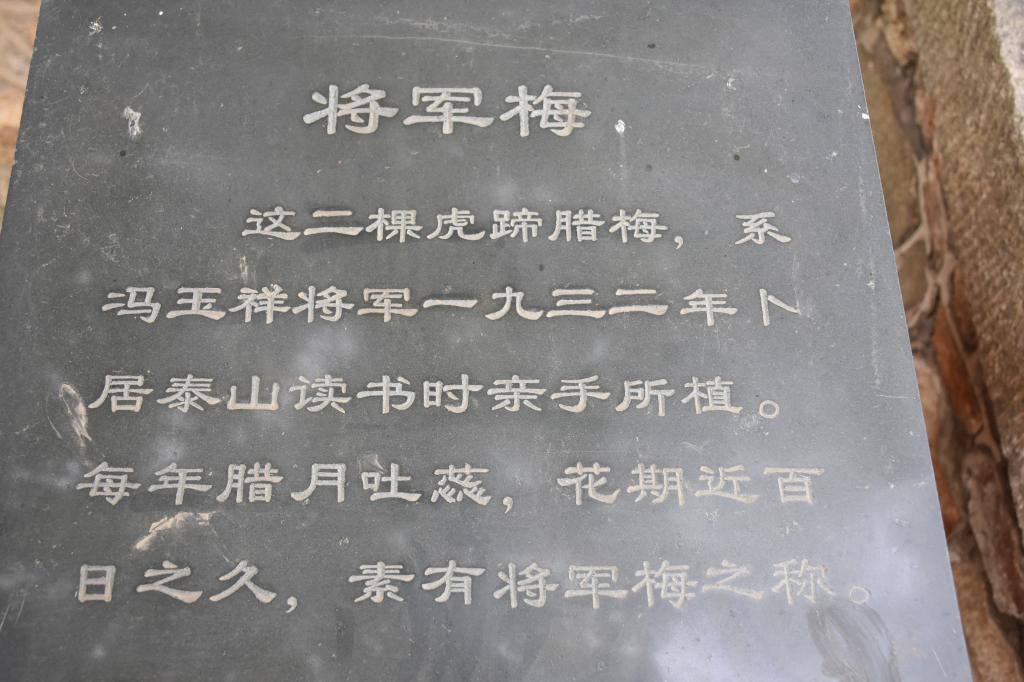 将军梅
这二棵虎蹄腊梅，系
冯玉祥将军一九三二年卜
居泰山读书时亲手所植。
每年腊月吐蕊，花期近百
日之久，素有将军梅之称。